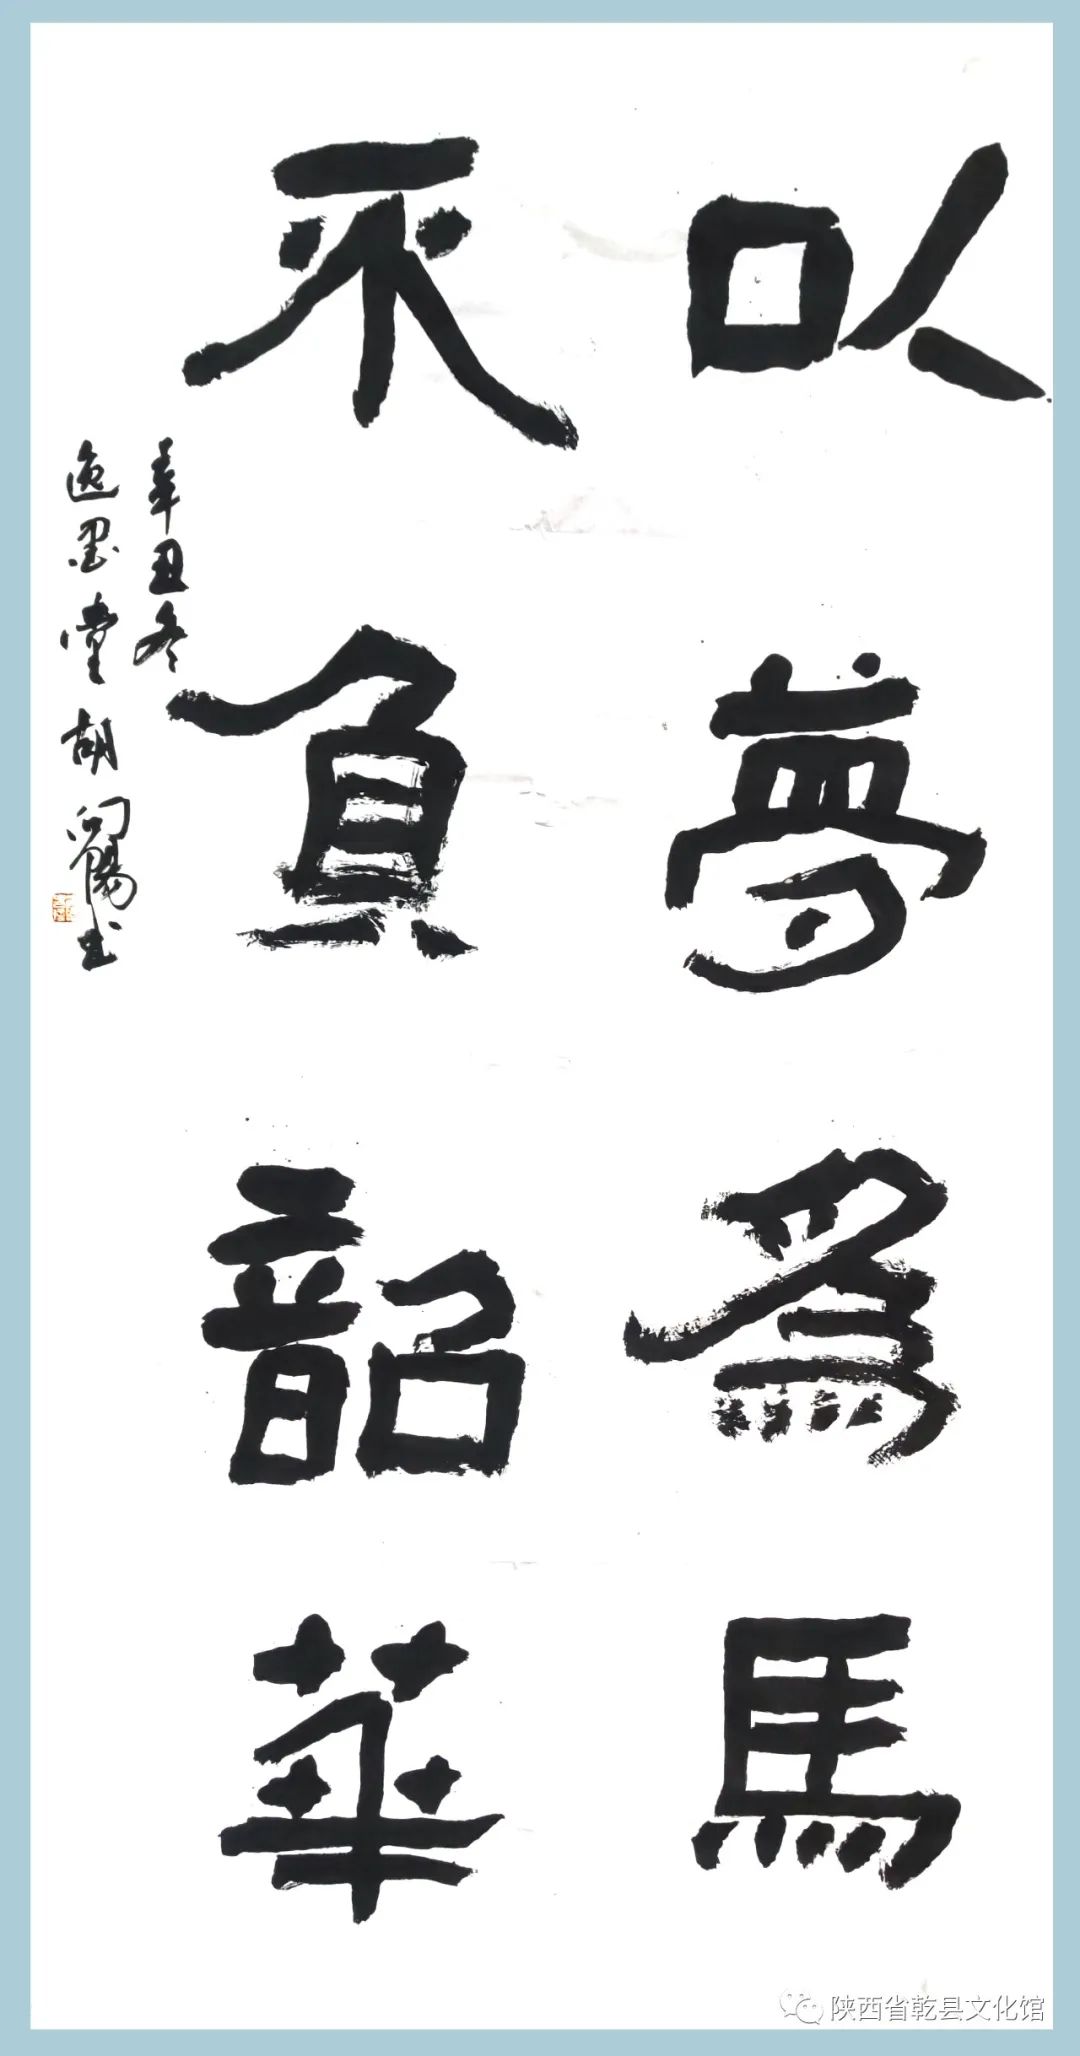 以夢為馬
不負韶華
辛丑冬
逸墨堂胡向陽书
陕西省乾县文化馆